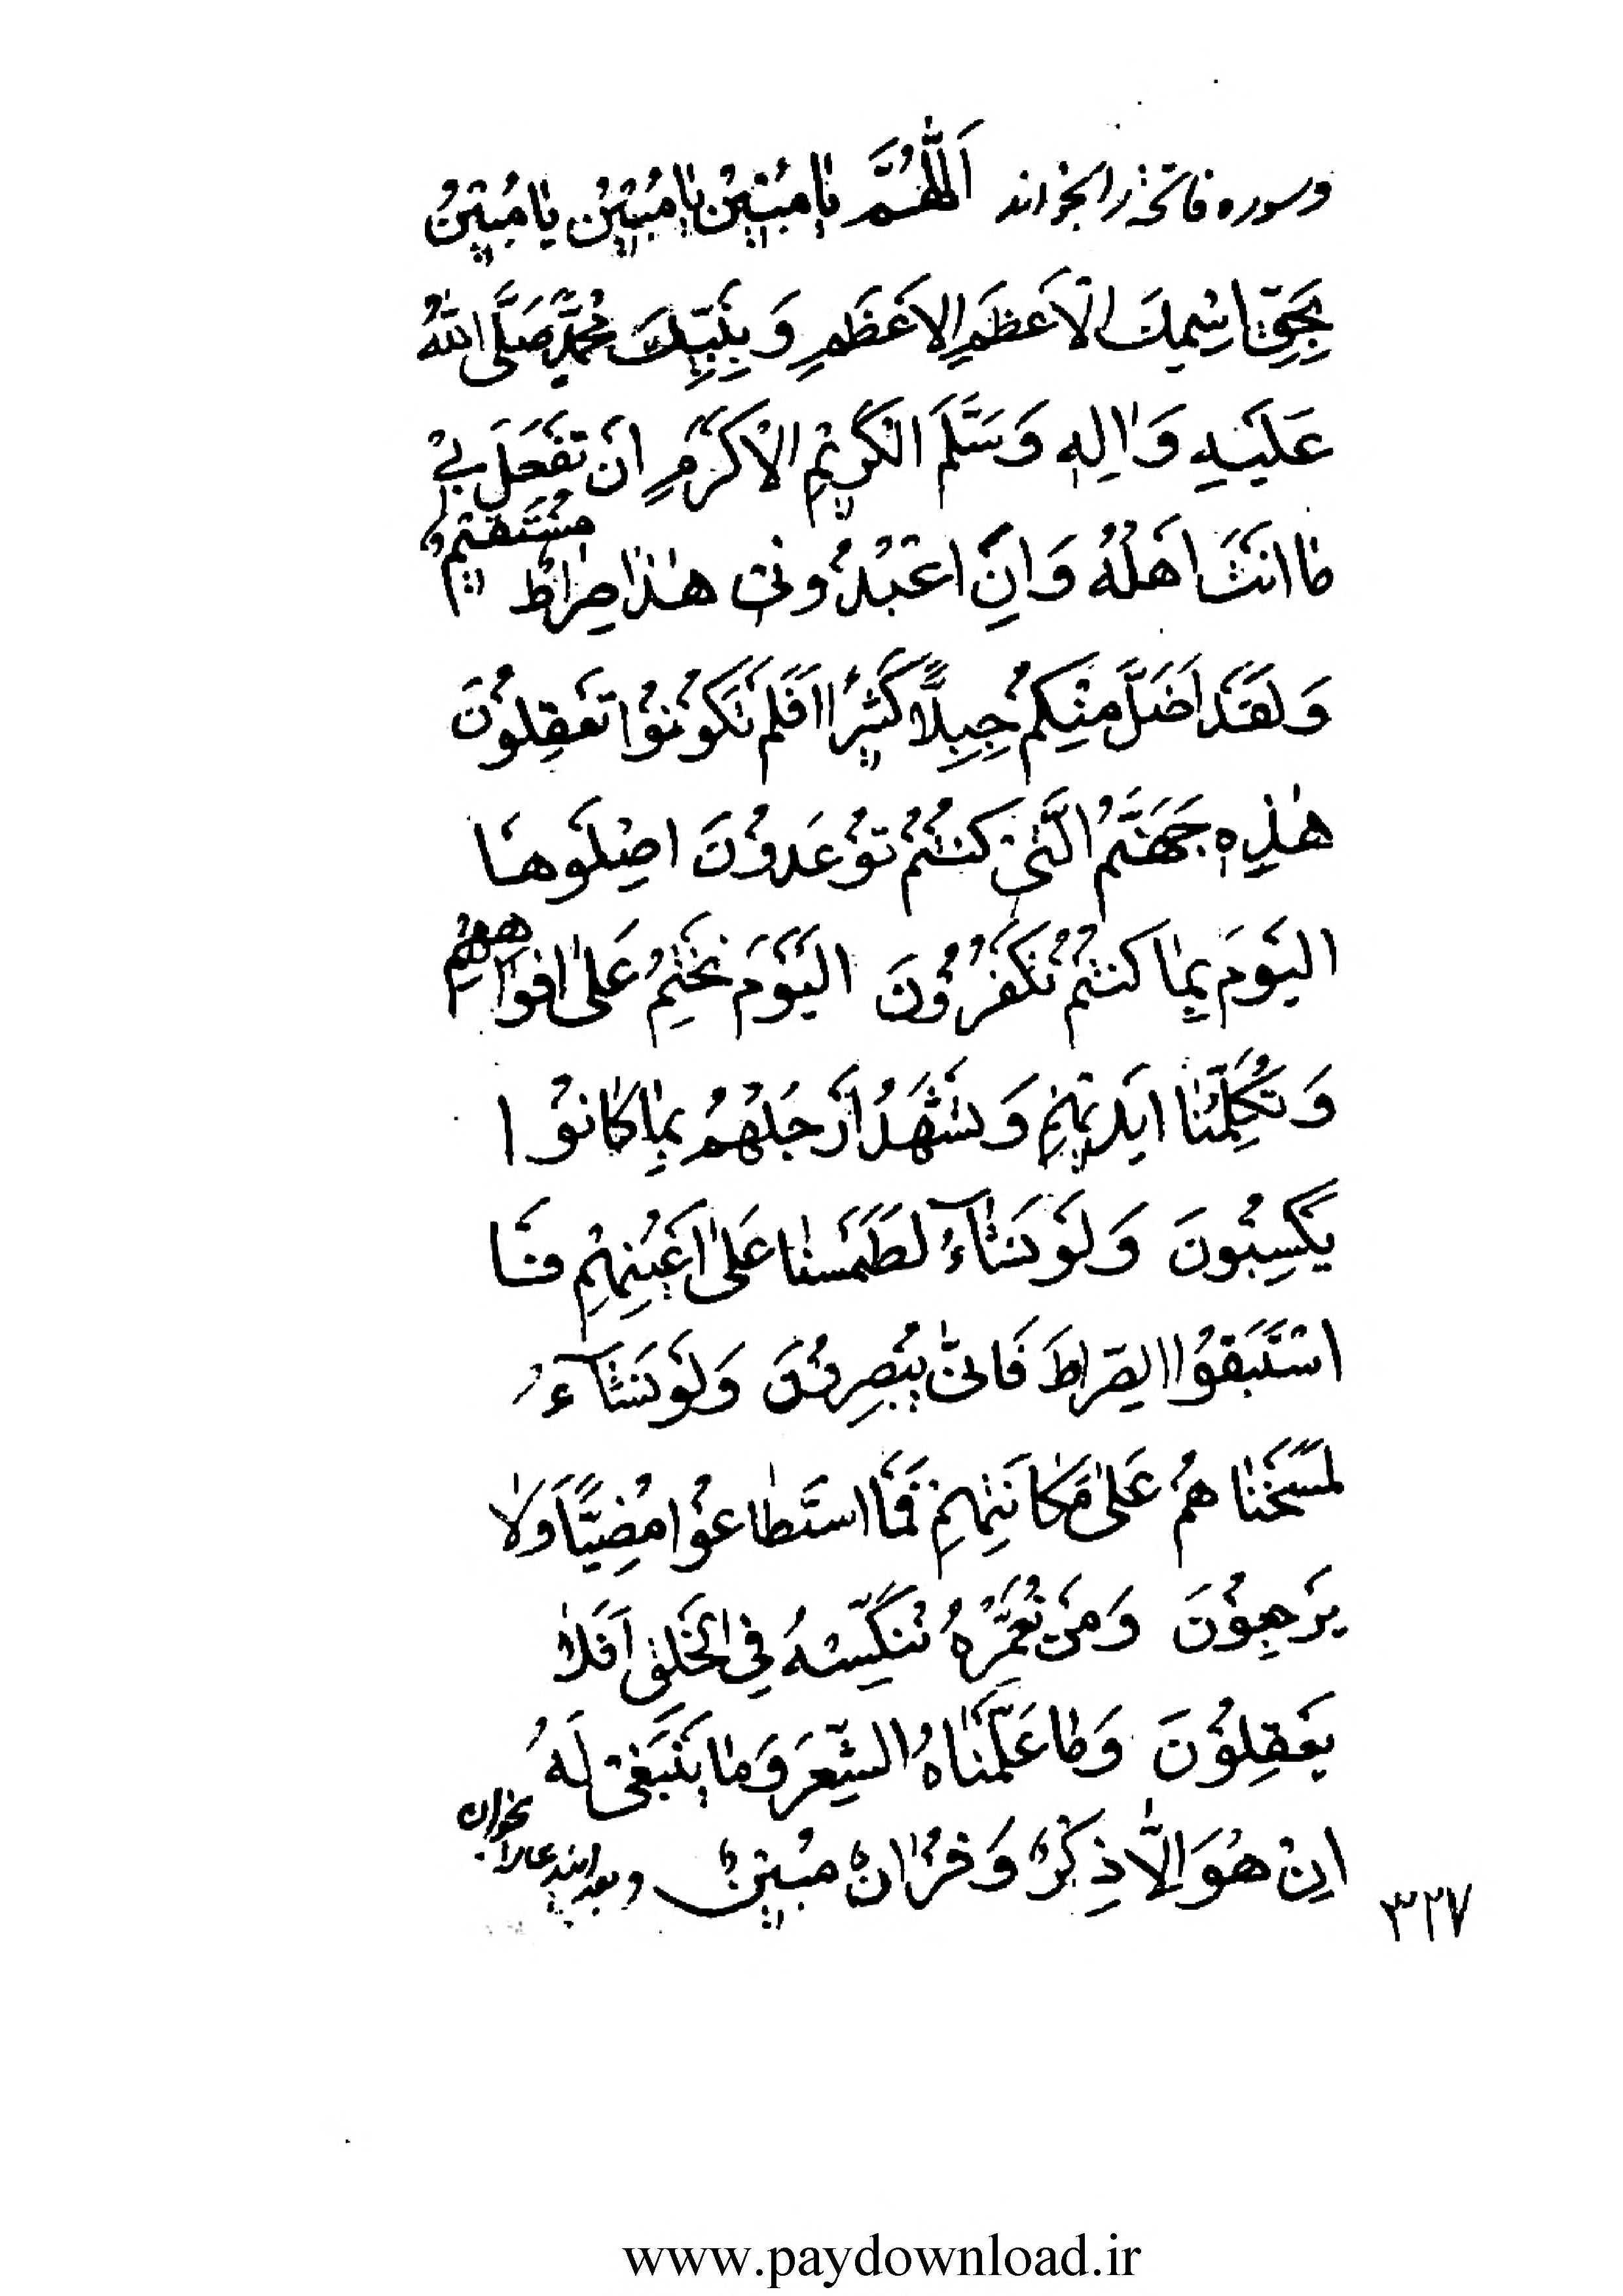 وسوره فاتحه را بخواند اَللّٰهُمَّ یٰا مُبینُ یٰا مُبینُ یٰا مُبینُ
بِحَقِّ اسْمِكَ الْاَعْظَمِ الْاَعْظَمِ وَ بِنَبِيِّكَ مُحَمَّدٍ صَلَّى اللّٰهُ
عَلَيْهِ وَ اٰلِهِ وَسَلَّمَ الْكَرِيمِ الْاَكْرَمِ اَنْ تَفْعَلَ بِي
مٰا اَنْتَ اَهْلُهُ وَ اَنِ اعْبُدُونِي هٰذٰا صِرٰاطٌ مُسْتَقِيمٌ
وَ لَقَدْ اَضَلَّ مِنْكُمْ جِبِلًّا كَثِيرًا اَفَلَمْ تَكُونُوا تَعْقِلُونَ
هٰذِهِ جَهَنَّمُ الَّتِي كُنْتُمْ تُوعَدُونَ اِصْلَوْهَا
الْيَوْمَ بِمٰا كُنْتُمْ تَكْفُرُونَ الْيَوْمَ نَخْتِمُ عَلىٰ اَفْوٰاهِهِمْ
وَ تُكَلِّمُنٰا اَيْدِيهِمْ وَ تَشْهَدُ اَرْجُلُهُمْ بِمٰا كٰانُوا
يَكْسِبُونَ وَ لَوْ نَشٰآءُ لَطَمَسْنٰا عَلىٰ اَعْيُنِهِمْ فَا
اسْتَبَقُوا الصِّرٰاطَ فَاَنّٰى يُبْصِرُونَ وَ لَوْ نَشٰآءُ
لَمَسَخْنٰا هُمْ عَلىٰ مَكٰانَتِهِمْ فَمَا اسْتَطٰاعُوا مُضِيًّا وَلٰا
يَرْجِعُونَ وَ مَنْ نُعَمِّرْهُ نُنَكِّسْهُ فِي الْخَلْقِ اَفَلٰا
يَعْقِلُونَ وَ مٰا عَلَّمْنٰاهُ الشِّعْرَ وَ مٰا يَنْبَغِي لَهُ
اِنْ هُوَ اِلَّا ذِكْرٌ وَ قُرْاٰنٌ مُبِينٌ و بعد ایندعا را بخوان
۳۲۷
www.paydownload.ir